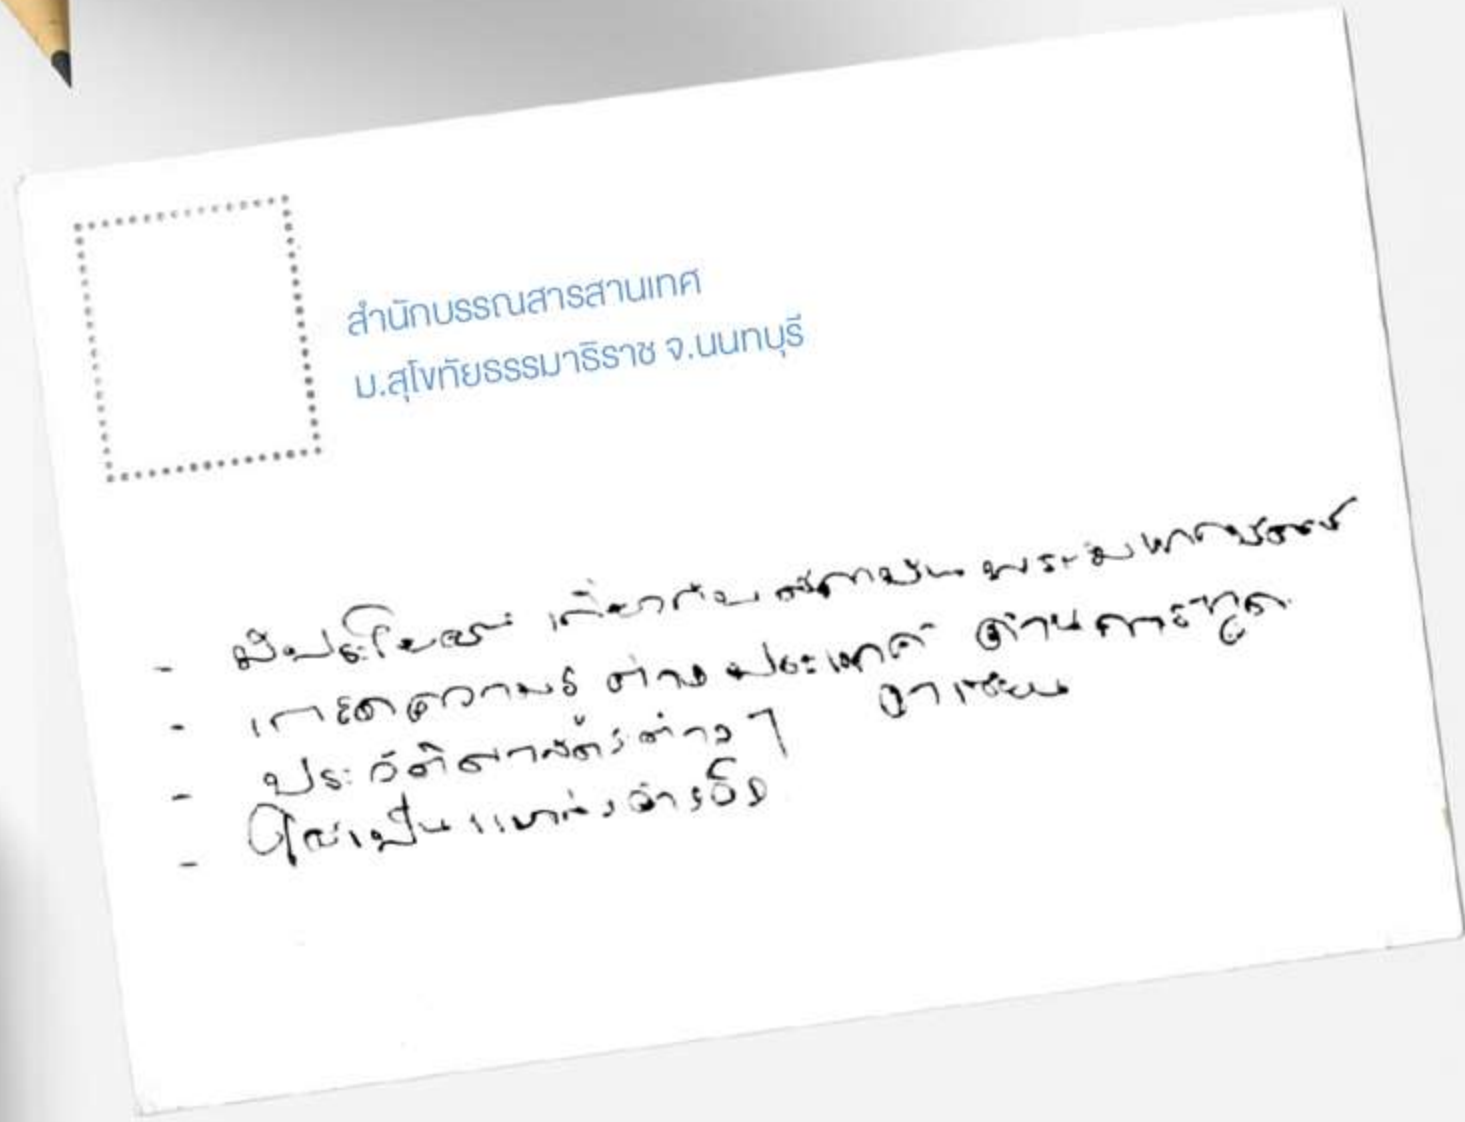 สำนักบรรณสารสนเทศ
ม.สุโขทัยธรรมาธิราช จ.นนทบุรี
- มีประโยชน์ เกี่ยวกับ สถาบัน พระมหากษัตริย์
- เกิดความรู้ ต่างประเทศ ด้านการทูต
อาเซียน
- ประวัติศาสตร์ต่างๆ
- ใช้เป็นแหล่งอ้างอิง